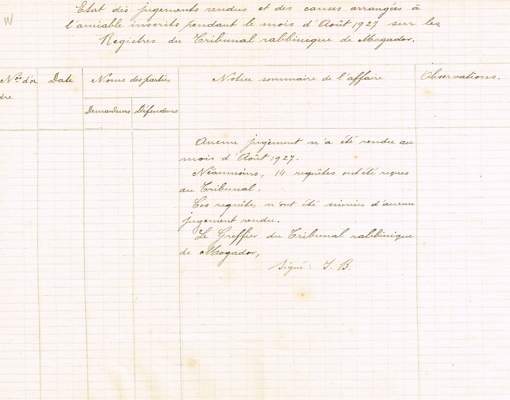 Etat des jugements rendus et des causes arrangées à
l'amiable inscrits pendant le mois d'Août 1927 sur les
Registres du Tribunal rabbinique de Mogador.
Nos d'or
dre
Date
Noms des parties
Demandeurs
Défendeurs
Notice sommaire de l'affaire
Observations.
Aucun jugement n'a été rendu au
mois d'Août 1927.
Néanmoins, 14 requêtes ont été reçues
au Tribunal.
Ces requêtes n'ont été suivies d'aucun
jugement rendu.
Le Greffier du Tribunal rabbinique
de Mogador,
Signé: I. B.